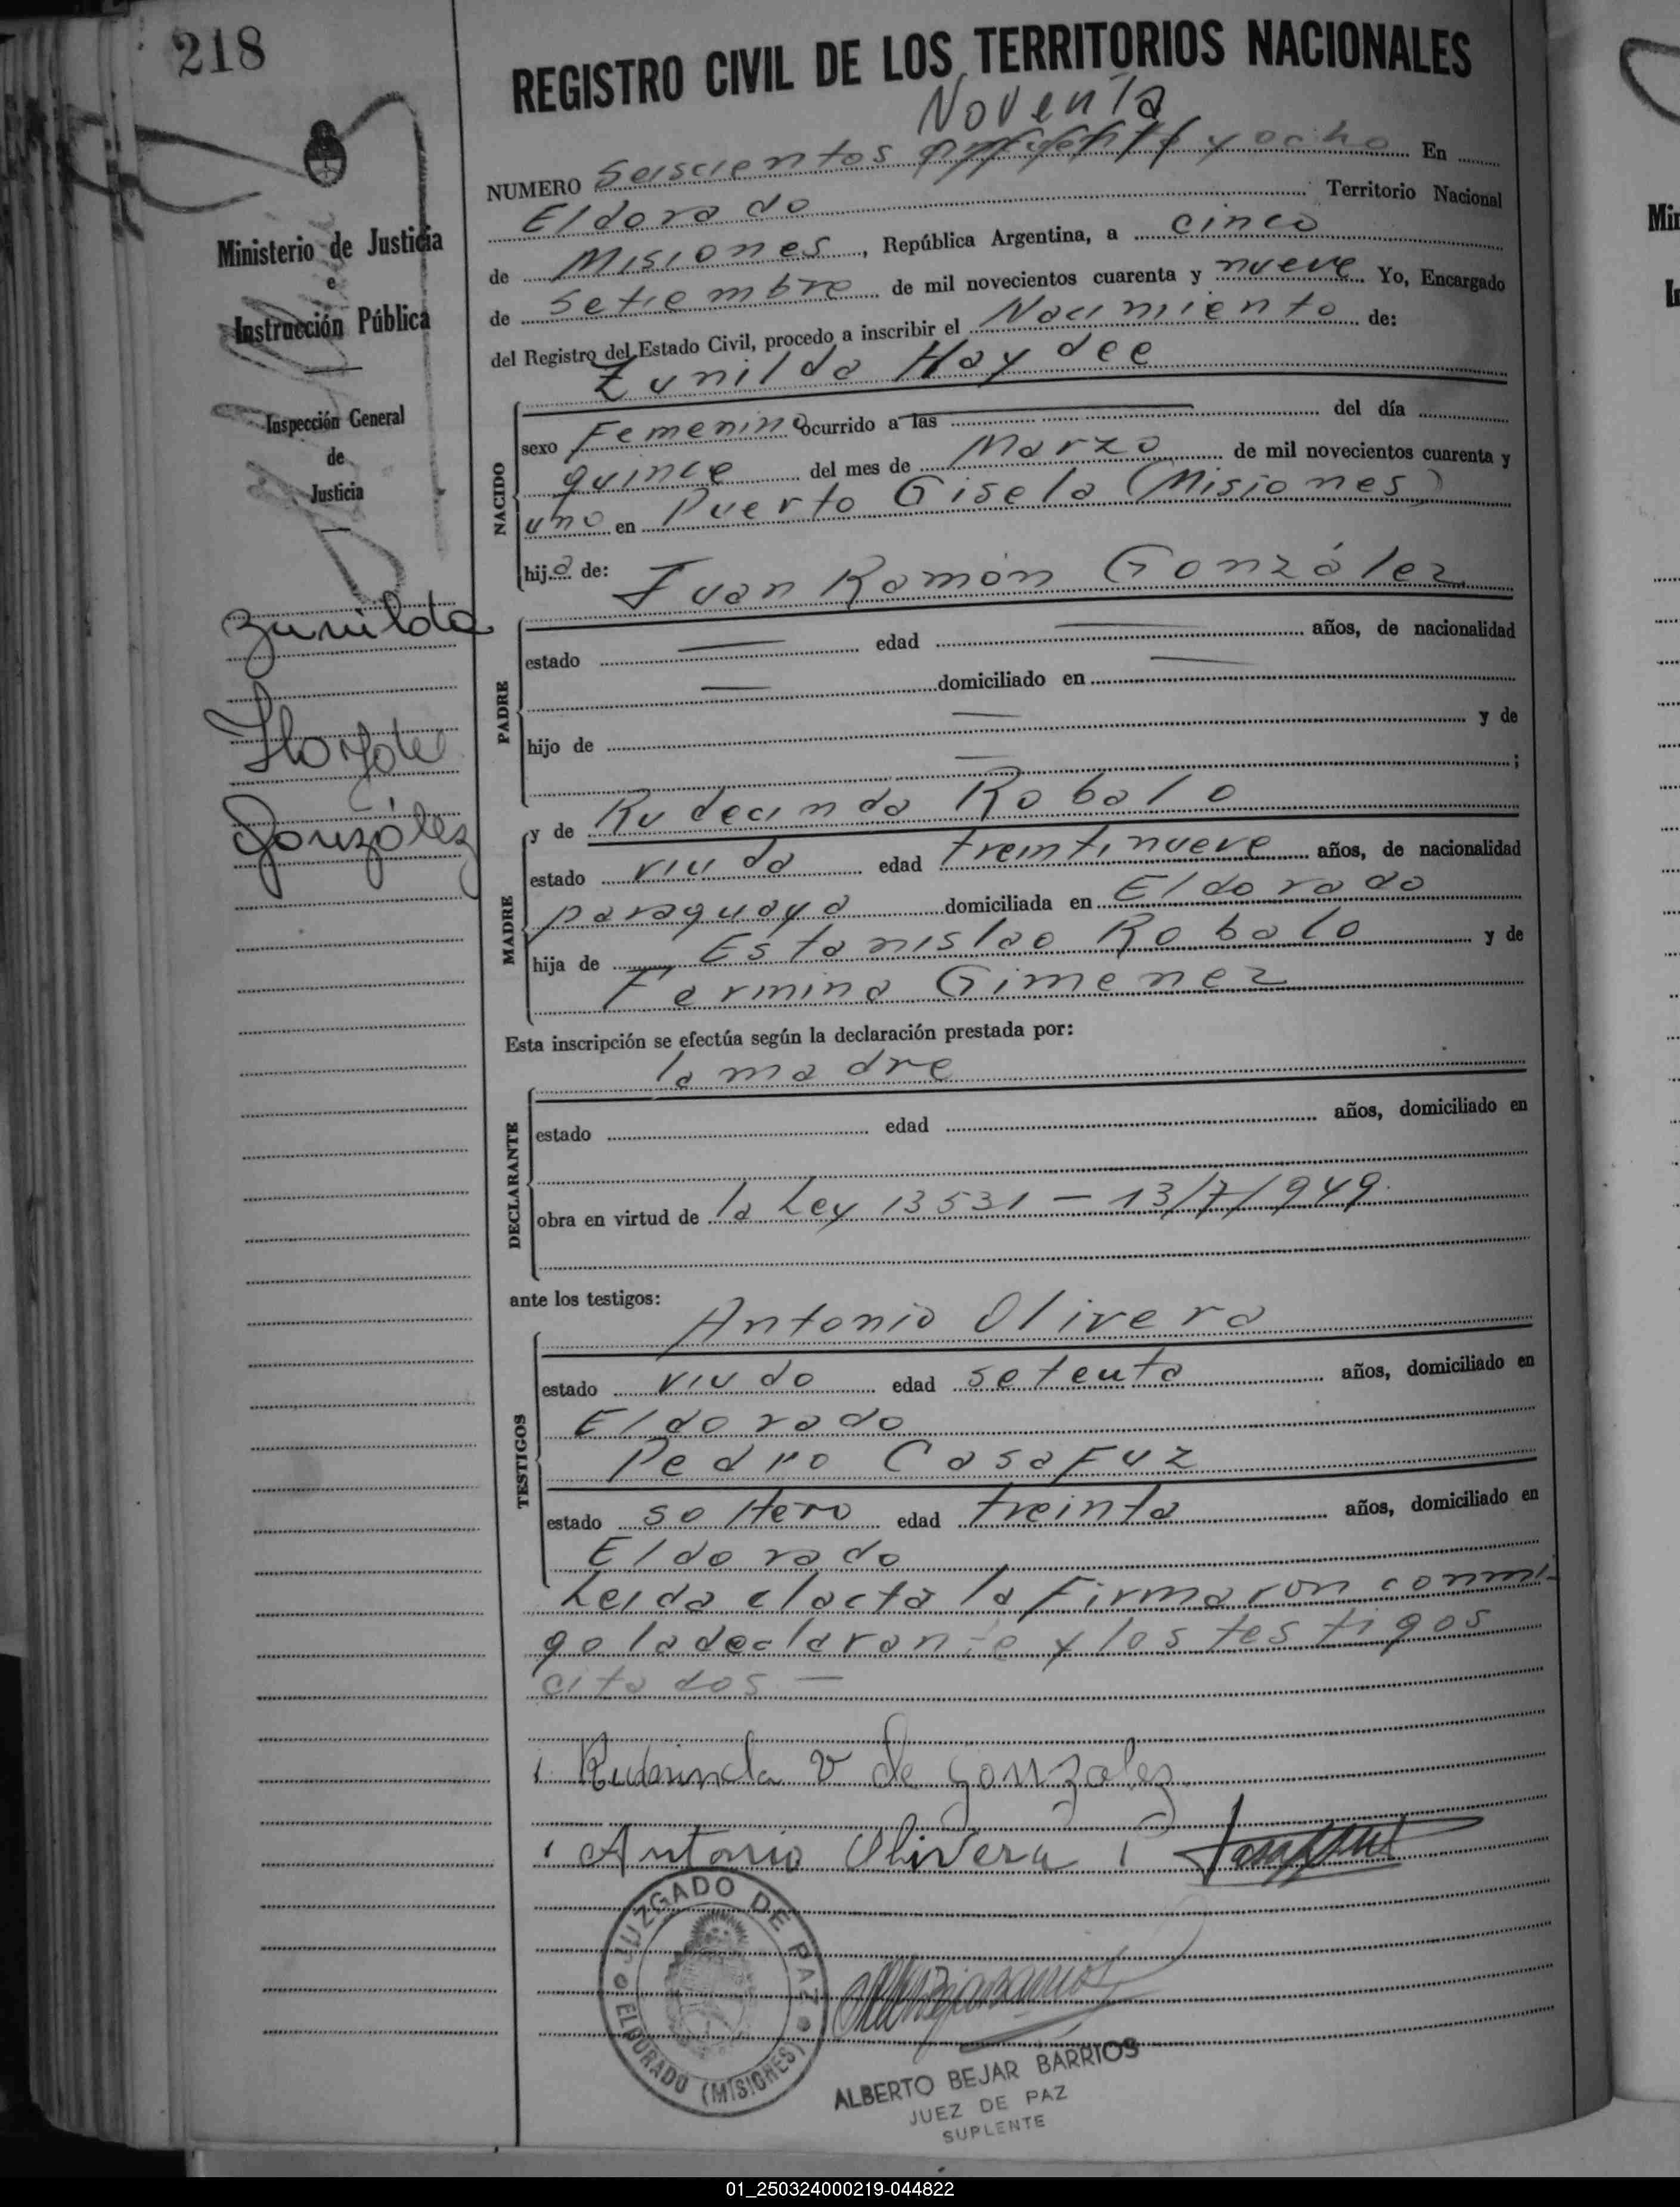 218
REGISTRO CIVIL DE LOS TERRITORIOS NACIONALES
Noventa
NUMERO Seiscientos y ocho En
Eldorado Territorio Nacional
de Misiones, República Argentina, a cinco
de Setiembre de mil novecientos cuarenta y nueve Yo, Encargado
del Registro del Estado Civil, procedo a inscribir el Nacimiento de:
Zunilda Haydee
Ministerio de Justicia
e
Instrucción Pública
Inspección General
de
Justicia
Zunilda
González
NACIDO
sexo Femenino ocurrido a las del día
quince del mes de Marzo de mil novecientos cuarenta y
uno en Puerto Gisela (Misiones)
hija de: Juan Ramón González
PADRE
estado edad años, de nacionalidad
domiciliado en
hijo de y de
;
MADRE
y de Rudecinda Robalo
estado viuda edad treintinueve años, de nacionalidad
paraguaya domiciliada en Eldorado
hija de Estanislao Robalo y de
Fermina Gimenez
Esta inscripción se efectúa según la declaración prestada por:
la madre
DECLARANTE
estado edad años, domiciliado en
obra en virtud de la Ley 13531 — 13/7/949.
ante los testigos:
TESTIGOS
Antonio Olivera
estado viudo edad setenta años, domiciliado en
Eldorado
Pedro Casafuz
estado soltero edad treinta años, domiciliado en
Eldorado
Leida el acta la firmaron conmi-
go la declarante y los testigos
citados. —
v de Gonzalez
Antonio Olivera
JUZGADO DE PAZ
ELDORADO (MISIONES)
ALBERTO BEJAR BARRIOS
JUEZ DE PAZ
SUPLENTE
01_250324000219-044822